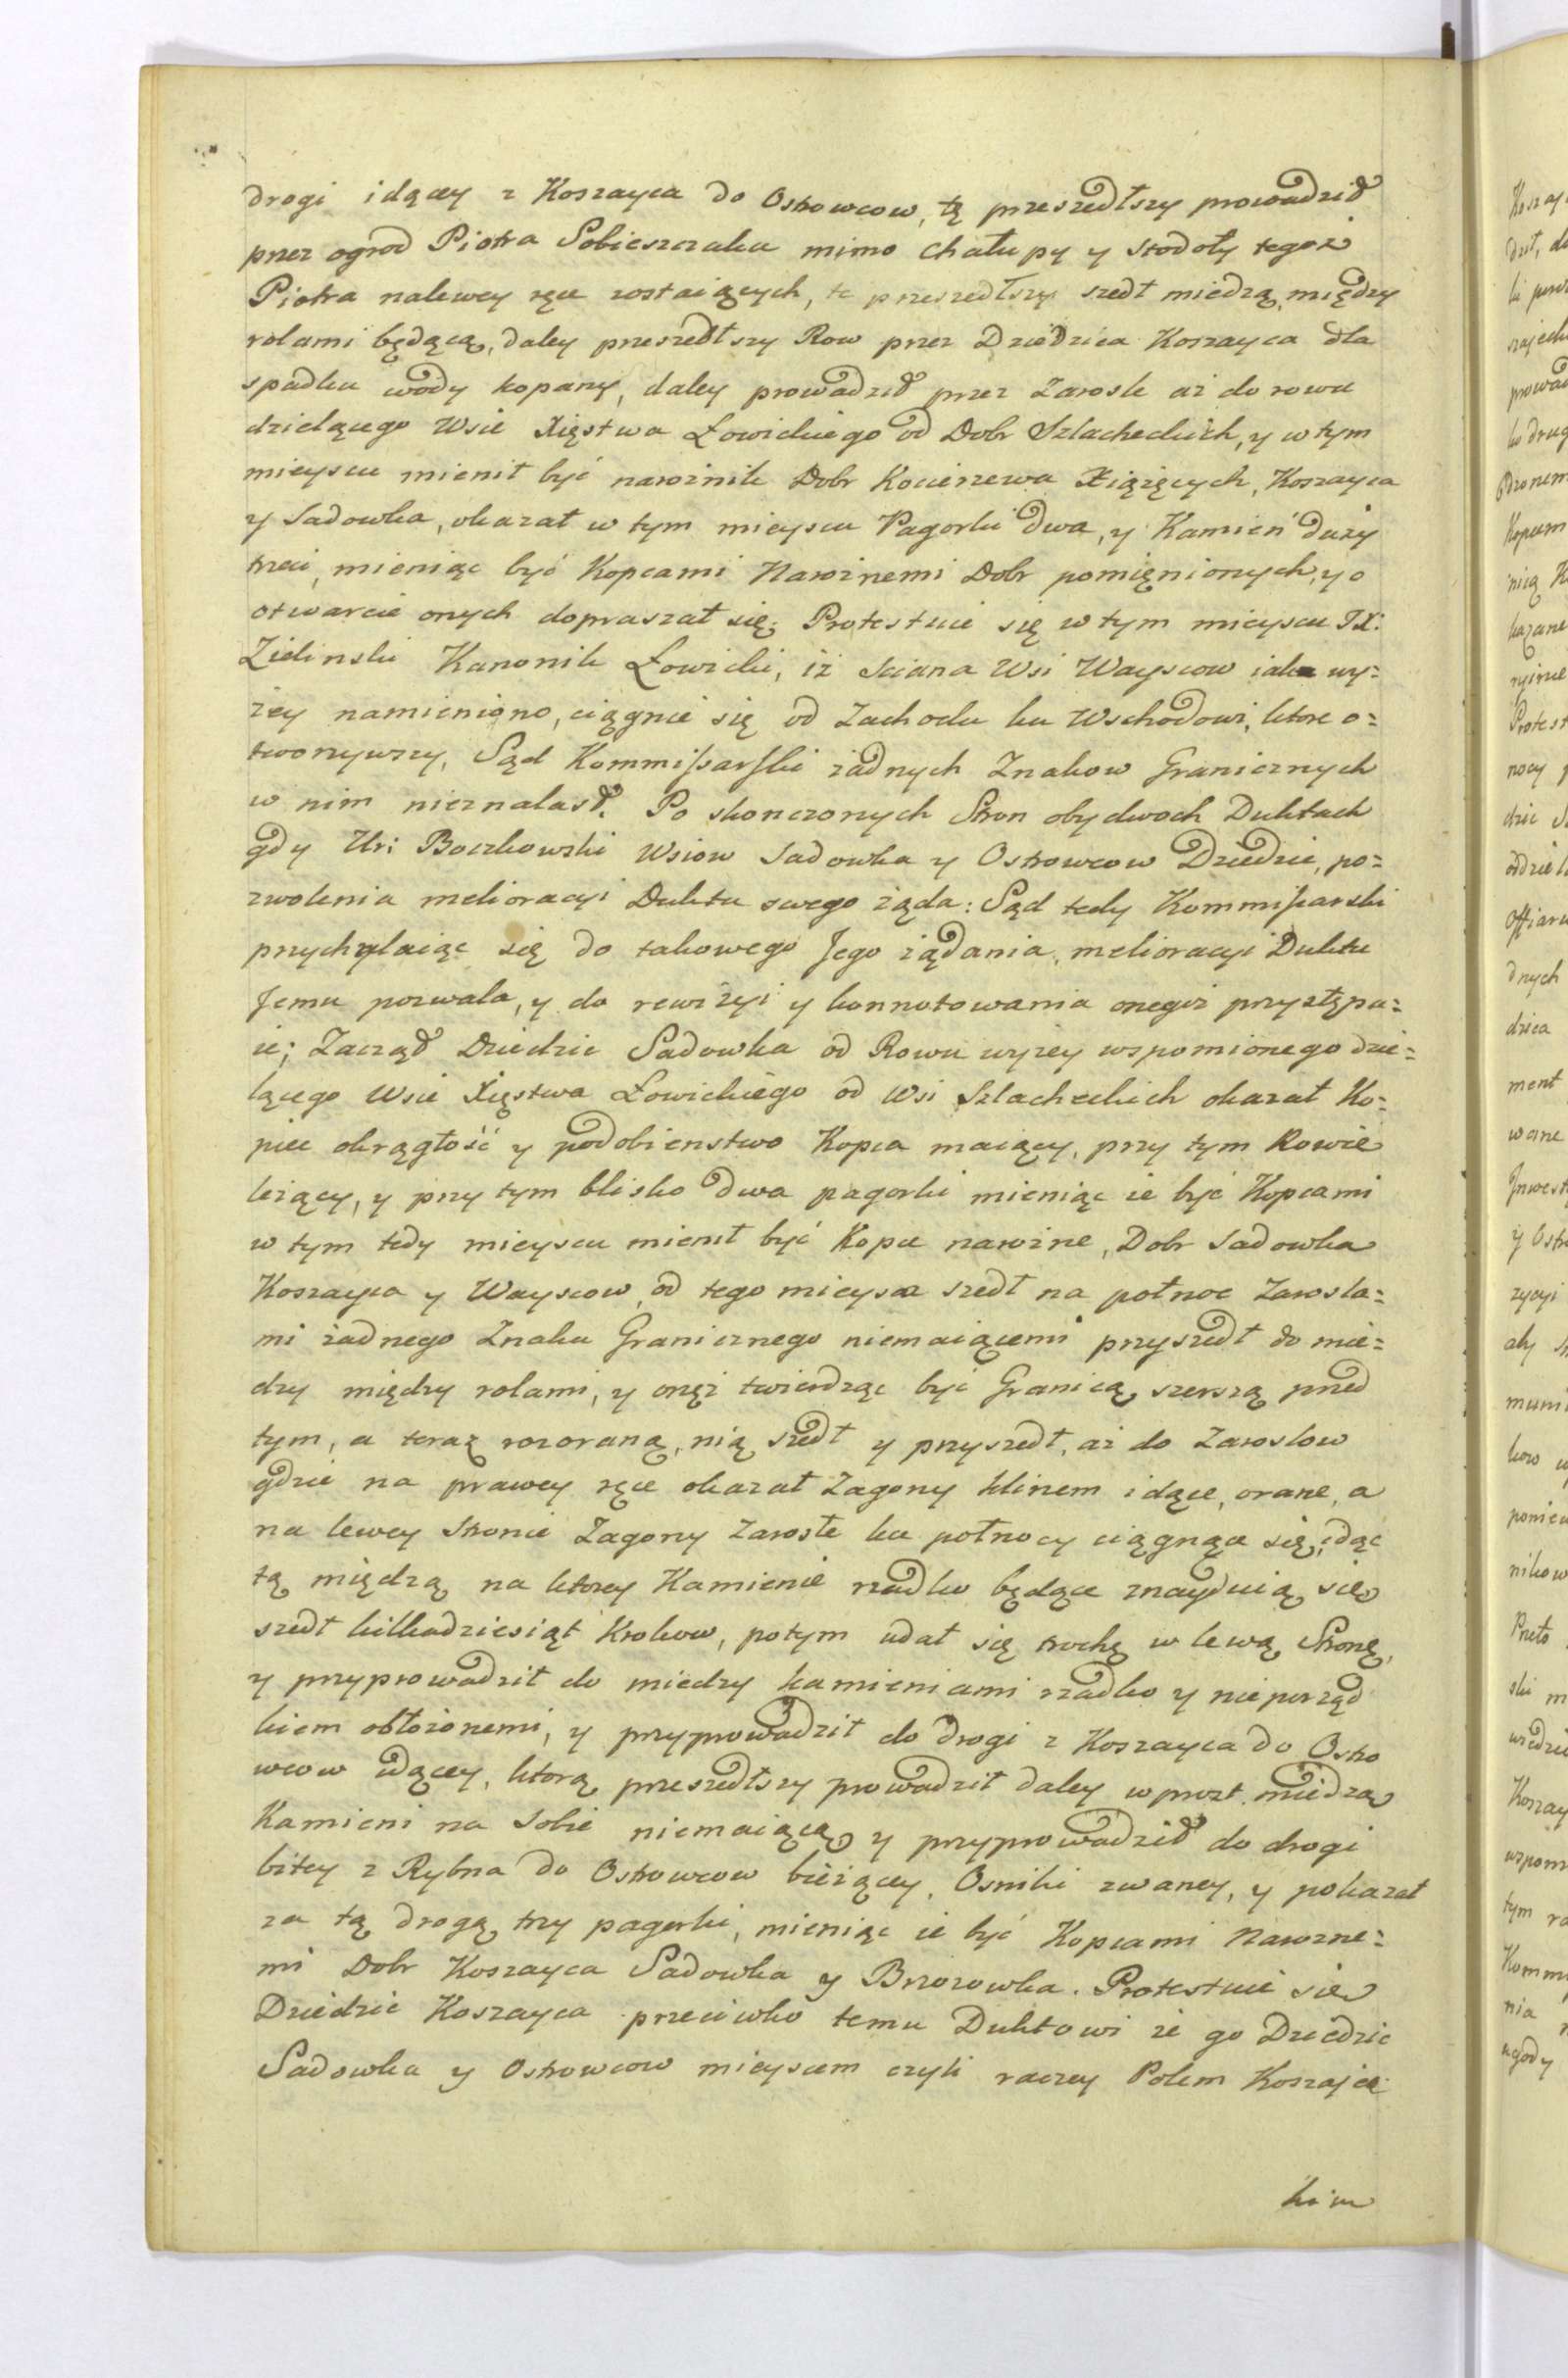 drogi idącey z Koszayca do Ostrowcow, tę przeszedłszy prowadził
przez ogrod Piotra Sobieszczaka mimo chałupy y stodoły tegoż
Piotra nalewey ręce zostaiących, te przeszedłszy szedł miedzą, między
rolami będącą, daley przeszedłszy Row przez Dziedzica Koszayca dla
spadku wody kopany, daley prowadził przez Zarosle aż do rowu
dzielącego Wsie Xięstwa Łowickiego od Dobr Szlacheckich, y w tym
mieyscu mienił być narożnik Dobr Kocierzewa Xiążęcych, Koszayca
y Sadowka, okazał w tym mieyscu Pagorki dwa, y Kamień duży
trzeci, mieniąc być Kopcami Narożnemi Dobr pomięnionych, y o
otwarcie onych dopraszał się. Protestuie się w tym mieyscu JX:
Zielinski Kanonik Łowicki, iż sciana Wsi Wayscow iako wy=
żey namieniono, ciągnie się od Zachodu ku Wschodowi, ktore o=
tworzywszy, Sąd Kommissarski żadnych Znakow Granicznych
w nim nieznalasł. Po skonczonych Stron obydwoch Duktach
gdy Ur: Boczkowski Wsiow Sadowka y Ostrowcow Dziedzic, po=
zwolenia melioracyi Duktu swego żąda: Sąd tedy Kommissarski
przychylaiąc się do takowego Jego żądania, melioracyi Duktu
Jemu pozwala, y do rewizyi y konnotowania onegoż przystępu=
ie; Zaczął Dziedzic Sadowka od Rowu wyżey wspomionego dzie=
lącego Wsie Xięstwa Łowickiego od Wsi Szlacheckich okazał Ko=
piec okrągłość y podobienstwo Kopca maiący, przy tym Rowie
leżący, y przy tym blisko dwa pagorki mieniąc ie być Kopcami
w tym tedy mieyscu mienił być Kopce narożne, Dobr Sadowka
Koszayca y Wayscow, od tego mieysca szedł na połnoc Zarosla=
mi żadnego Znaku Granicznego niemaiącemi przyszedł do mie=
dzy między rolami, y onęż twierdząc być Granicą, szerszą przed
tym, a teraz rozoraną, nią szedł y przyszedł, aż do Zaroslow
gdzie na prawey ręce okazał Zagony klinem idące, orane, a
na lewey stronie Zagony Zarosłe ku połnocy ciągnące się, idąc
tą międzą na ktorey Kamienie rzadko będące znayduią się
szedł kilkadziesiąt Krokow, potym udał się trochę w lewą Stronę,
y przyprowadził do miedzy kamieniami rzadko y nieporząd
kiem obłożonemi, y przyprowadził do drogi z Koszayca do Ostro
wcow idącey, ktorą przeszedłszy prowadził daley wprost miedzą
Kamieni na sobie niemaiącą, y przyprowadził do drogi
bitey z Rybna do Ostrowcow bieżącey, Osniki zwaney, y pokazał
za tą drogą trzy pagorki, mieniąc ie być Kopcami Narożne=
mi Dobr Koszayca Sadowka y Brzozowka. Protestuie się
Dziedzic Koszayca przeciwko temu Duktowi że go Dziedzic
Sadowka y Ostrowcow mieyscem czyli raczey Polem Koszajec
kim